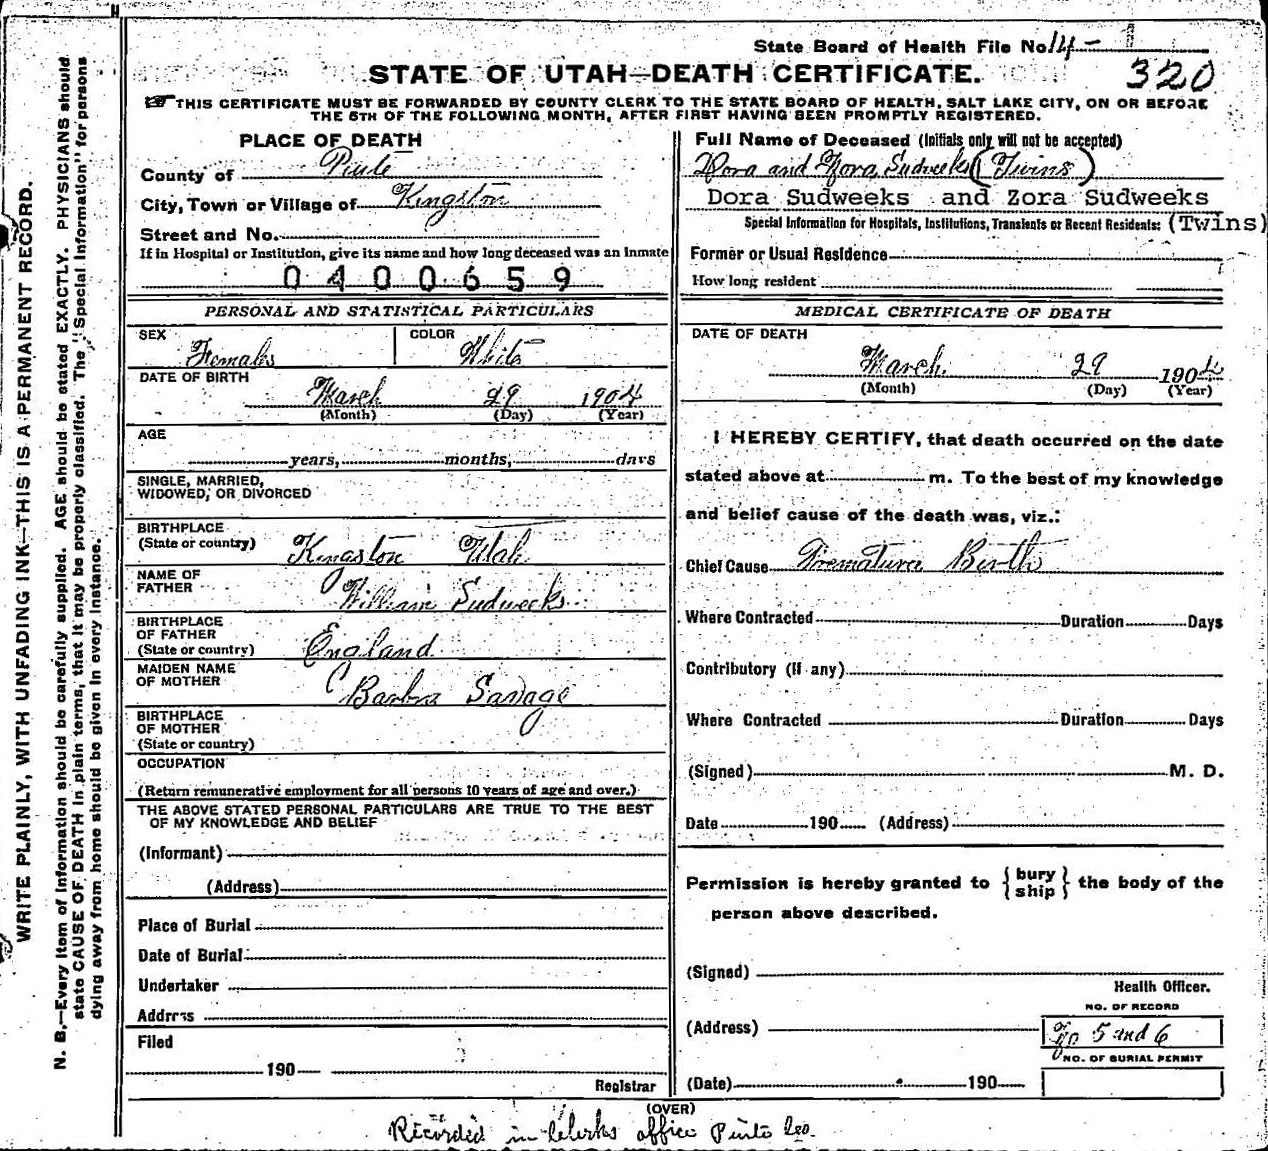 State Board of Health File No 14-
320
STATE OF UTAH—DEATH CERTIFICATE.
THIS CERTIFICATE MUST BE FORWARDED BY COUNTY CLERK TO THE STATE BOARD OF HEALTH, SALT LAKE CITY, ON OR BEFORE
THE 5TH OF THE FOLLOWING MONTH, AFTER FIRST HAVING BEEN PROMPTLY REGISTERED.
WRITE PLAINLY, WITH UNFADING INK—THIS IS A PERMANENT RECORD.
N. B.—Every item of information should be carefully supplied. AGE should be stated EXACTLY. PHYSICIANS should
state CAUSE OF DEATH in plain terms, that it may be properly classified. The "Special Information" for persons
dying away from home should be given in every instance.
PLACE OF DEATH
County of Piute
City, Town or Village of Kingston
Street and No.
If in Hospital or Institution, give its name and how long deceased was an inmate
0400659
PERSONAL AND STATISTICAL PARTICULARS
SEX Females COLOR White
DATE OF BIRTH
March 29 1904
(Month) (Day) (Year)
AGE
years, months, days
SINGLE, MARRIED,
WIDOWED, OR DIVORCED
BIRTHPLACE
(State or country) Kingston Utah
NAME OF
FATHER William Sudweeks
BIRTHPLACE
OF FATHER
(State or country) England
MAIDEN NAME
OF MOTHER Barbra Savage
BIRTHPLACE
OF MOTHER
(State or country)
OCCUPATION
(Return remunerative employment for all persons 10 years of age and over.)
THE ABOVE STATED PERSONAL PARTICULARS ARE TRUE TO THE BEST
OF MY KNOWLEDGE AND BELIEF
(Informant)
(Address)
Place of Burial
Date of Burial
Undertaker
Address
Filed
190
Registrar
Full Name of Deceased (Initials only will not be accepted)
Dora and Zora Sudweeks (Twins)
Dora Sudweeks and Zora Sudweeks
Special Information for Hospitals, Institutions, Transients or Recent Residents: (Twins)
Former or Usual Residence
How long resident
MEDICAL CERTIFICATE OF DEATH
DATE OF DEATH
March 29 1904
(Month) (Day) (Year)
I HEREBY CERTIFY, that death occurred on the date
stated above at m. To the best of my knowledge
and belief cause of the death was, viz.:
Chief Cause Premature Birth
Where Contracted Duration Days
Contributory (if any)
Where Contracted Duration Days
(Signed) M. D.
Date 190 (Address)
Permission is hereby granted to { bury ship } the body of the
person above described.
(Signed)
Health Officer.
NO. OF RECORD
(Address) 5 and 6
NO. OF BURIAL PERMIT
(Date) 190
(OVER)
Recorded in Clerks office Piute Co.